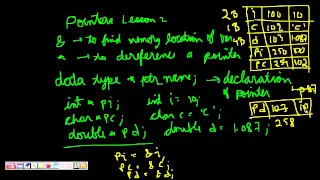 Pointers Lesson 2
& → to find memory location of var
* → to dereference a pointer
data type * ptr_name; → declaration of pointer
int * Pi; int i = 10;
char * Pc; char c = 'c';
double * Pd; double d = 1.087;
Pi = &i;
Pc = &c;
Pd = &d;
2B i 100 10
1B c 102 'c'
d 103 1.087
Pi 250 100
Pc 254 102
Pd 103
258